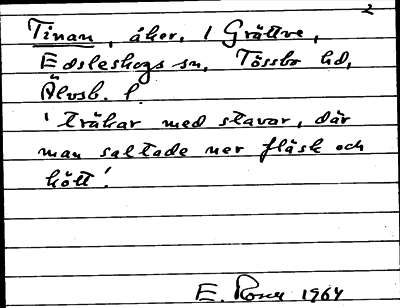 2
Tinan, åker, 1 Grättve,
Edsleskogs sn, Tössbo hd,
Älvsb. l.
'träkar med stavar, där
man saltade ner fläsk och
kött'.
E. Rosen 1964